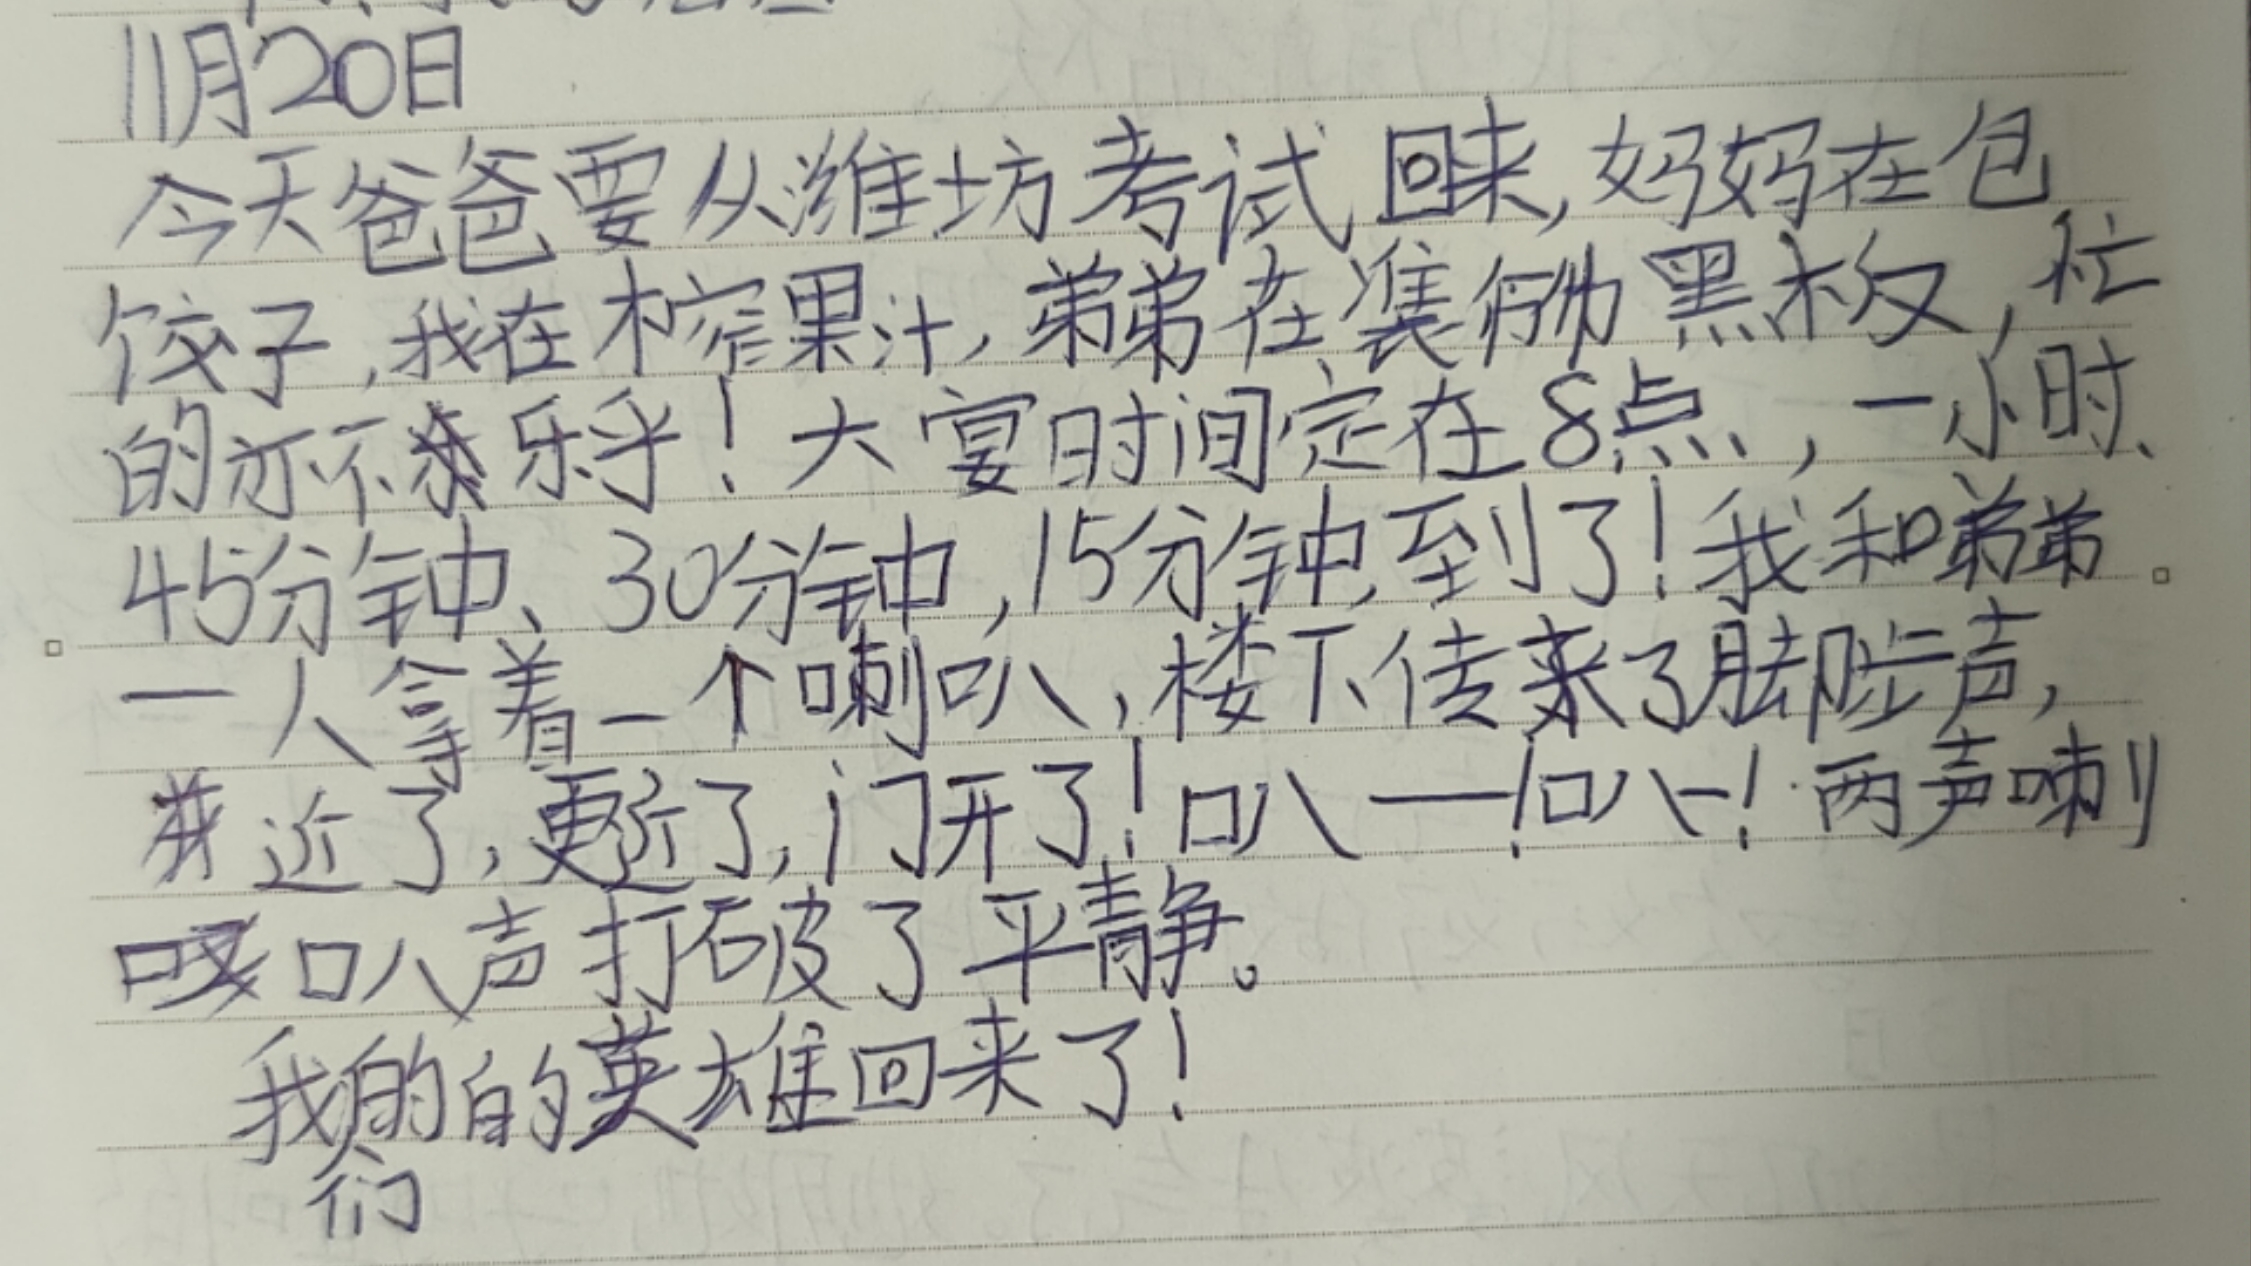 11月20日
今天爸爸要从潍坊考试回来,妈妈在包
饺子,我在榨果汁,弟弟在装饰黑板,忙
的亦不乐乎!大宴时间定在8点,一小时、
45分钟、30分钟,15分钟,到了!我和弟弟
一人拿着一个喇叭,楼下传来了脚步声,
近了,更近了,门开了!叭——!叭—!两声喇
叭声打破了平静。
我们的英雄回来了!